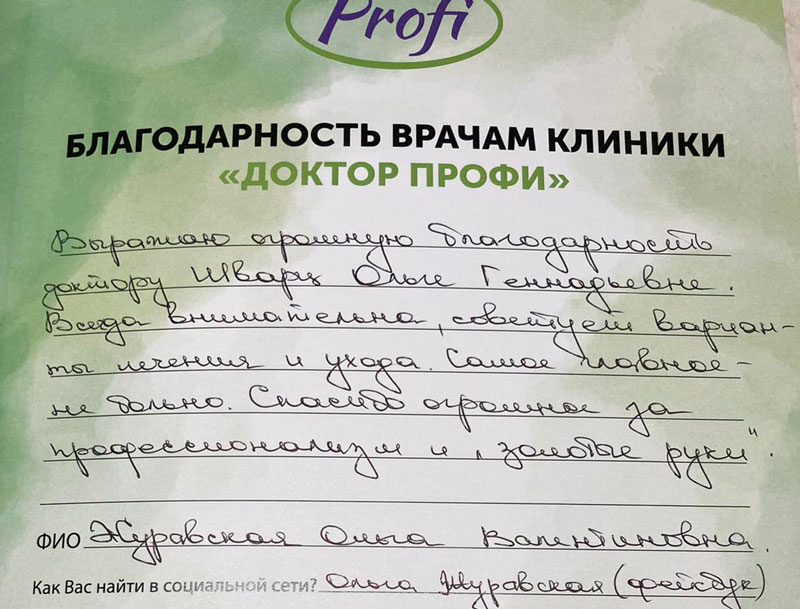 Profi
БЛАГОДАРНОСТЬ ВРАЧАМ КЛИНИКИ
«ДОКТОР ПРОФИ»
Выражаю огромную благодарность
доктору Шварц Ольге Геннадьевне.
Всегда внимательна, советует вариан-
ты лечения и ухода. Самое главное –
не больно. Спасибо огромное за
профессионализм и „золотые руки".
ФИО Журавская Ольга Валентиновна.
Как Вас найти в социальной сети? Ольга Журавская (фейсбук)